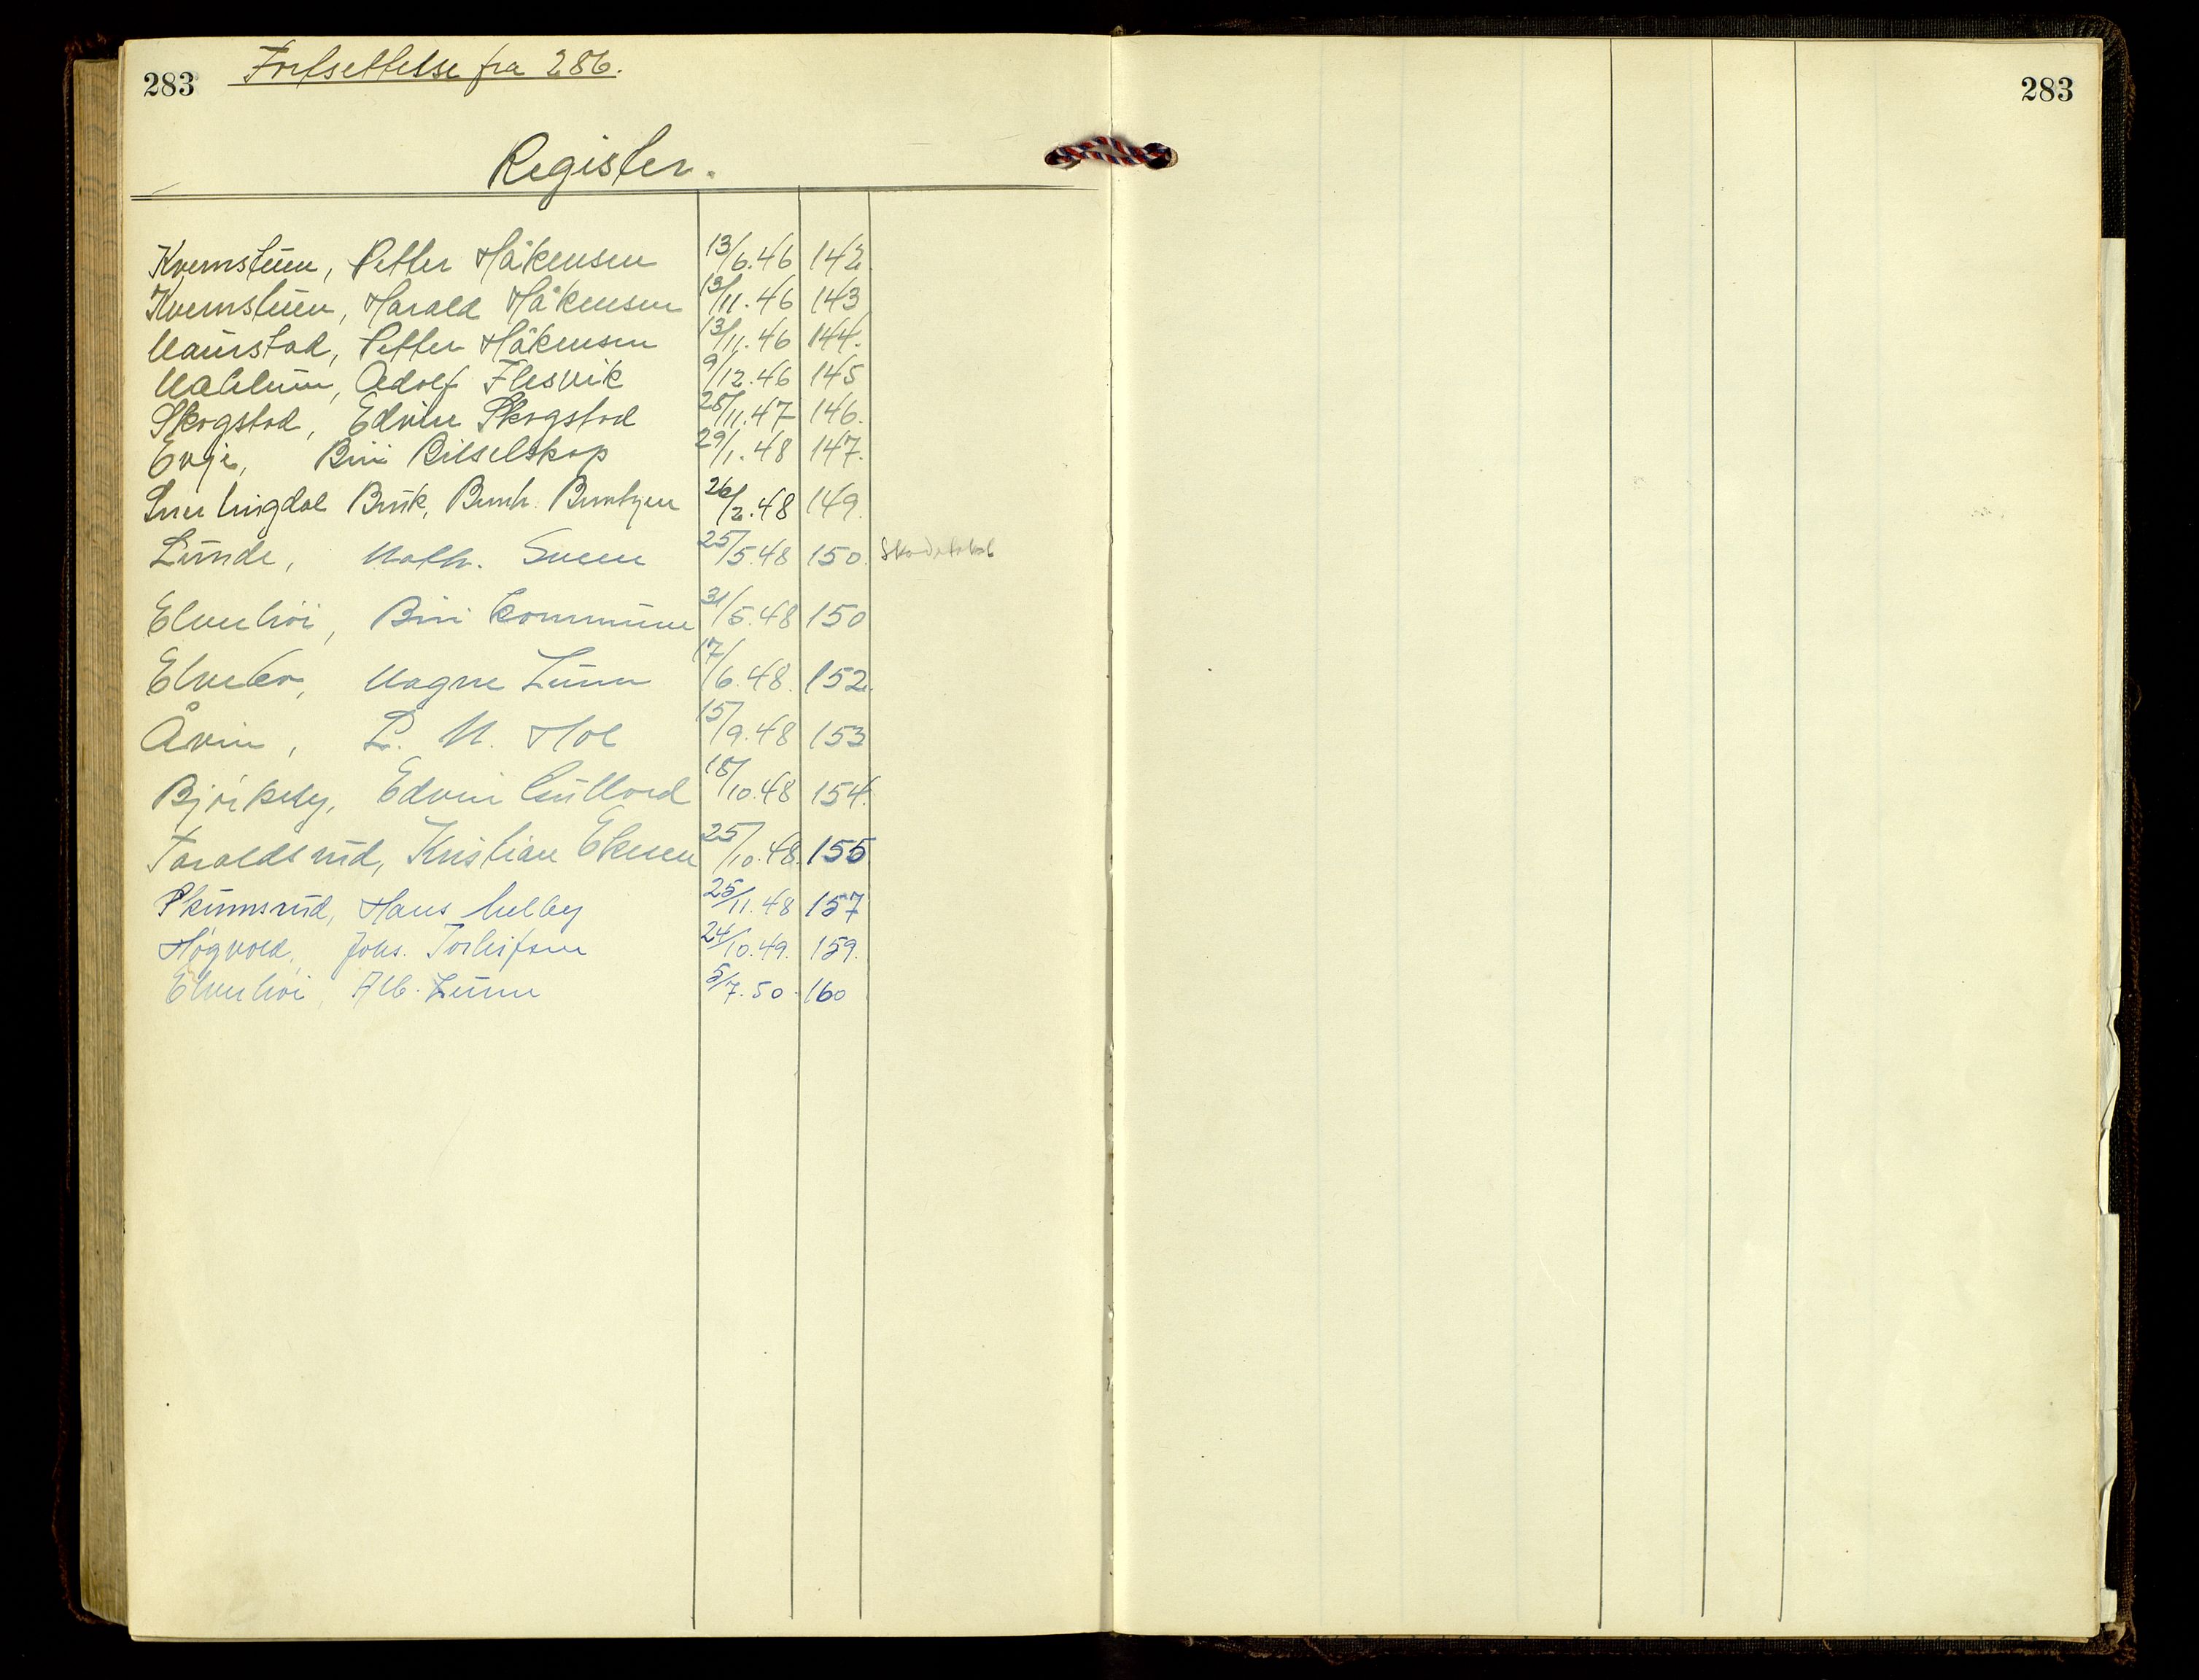 283 Fortsettelse fra 286.
283
Register.
Kvernstuen, Petter Håkensen 13/6.46 142.
Kvernstuen, Harald Håkensen 13/11.46 143
Maurstad, Petter Håkensen 13/11.46 144.
Adolf Flesvik 9/12.46 145
Skogstad, Edvin Skogstad 28/11.47 146.
Evje, Biri Bilselskap 29/1.48 147.
Bruk, 26/2.48 149.
Lunde, Math. Sveen 25/5.48 150. Skadetakst
Elverhöi, Biri kommune 31/5.48 150
Elvebo, Magne Lunn 17/6.48. 152.
Åvin, L. M. Hol 15/9.48 153
Björkely, Edvin Gullord 18/10.48 154.
Taraldsrud, Kristian Ekeren 25/10.48. 155
Skumsrud, Hans Melby 25/11.48 157
Högvold, Johs. Torleifsen 24/10.49. 159.
Elverhöi, Alb. Lunn 5/7.50. 160